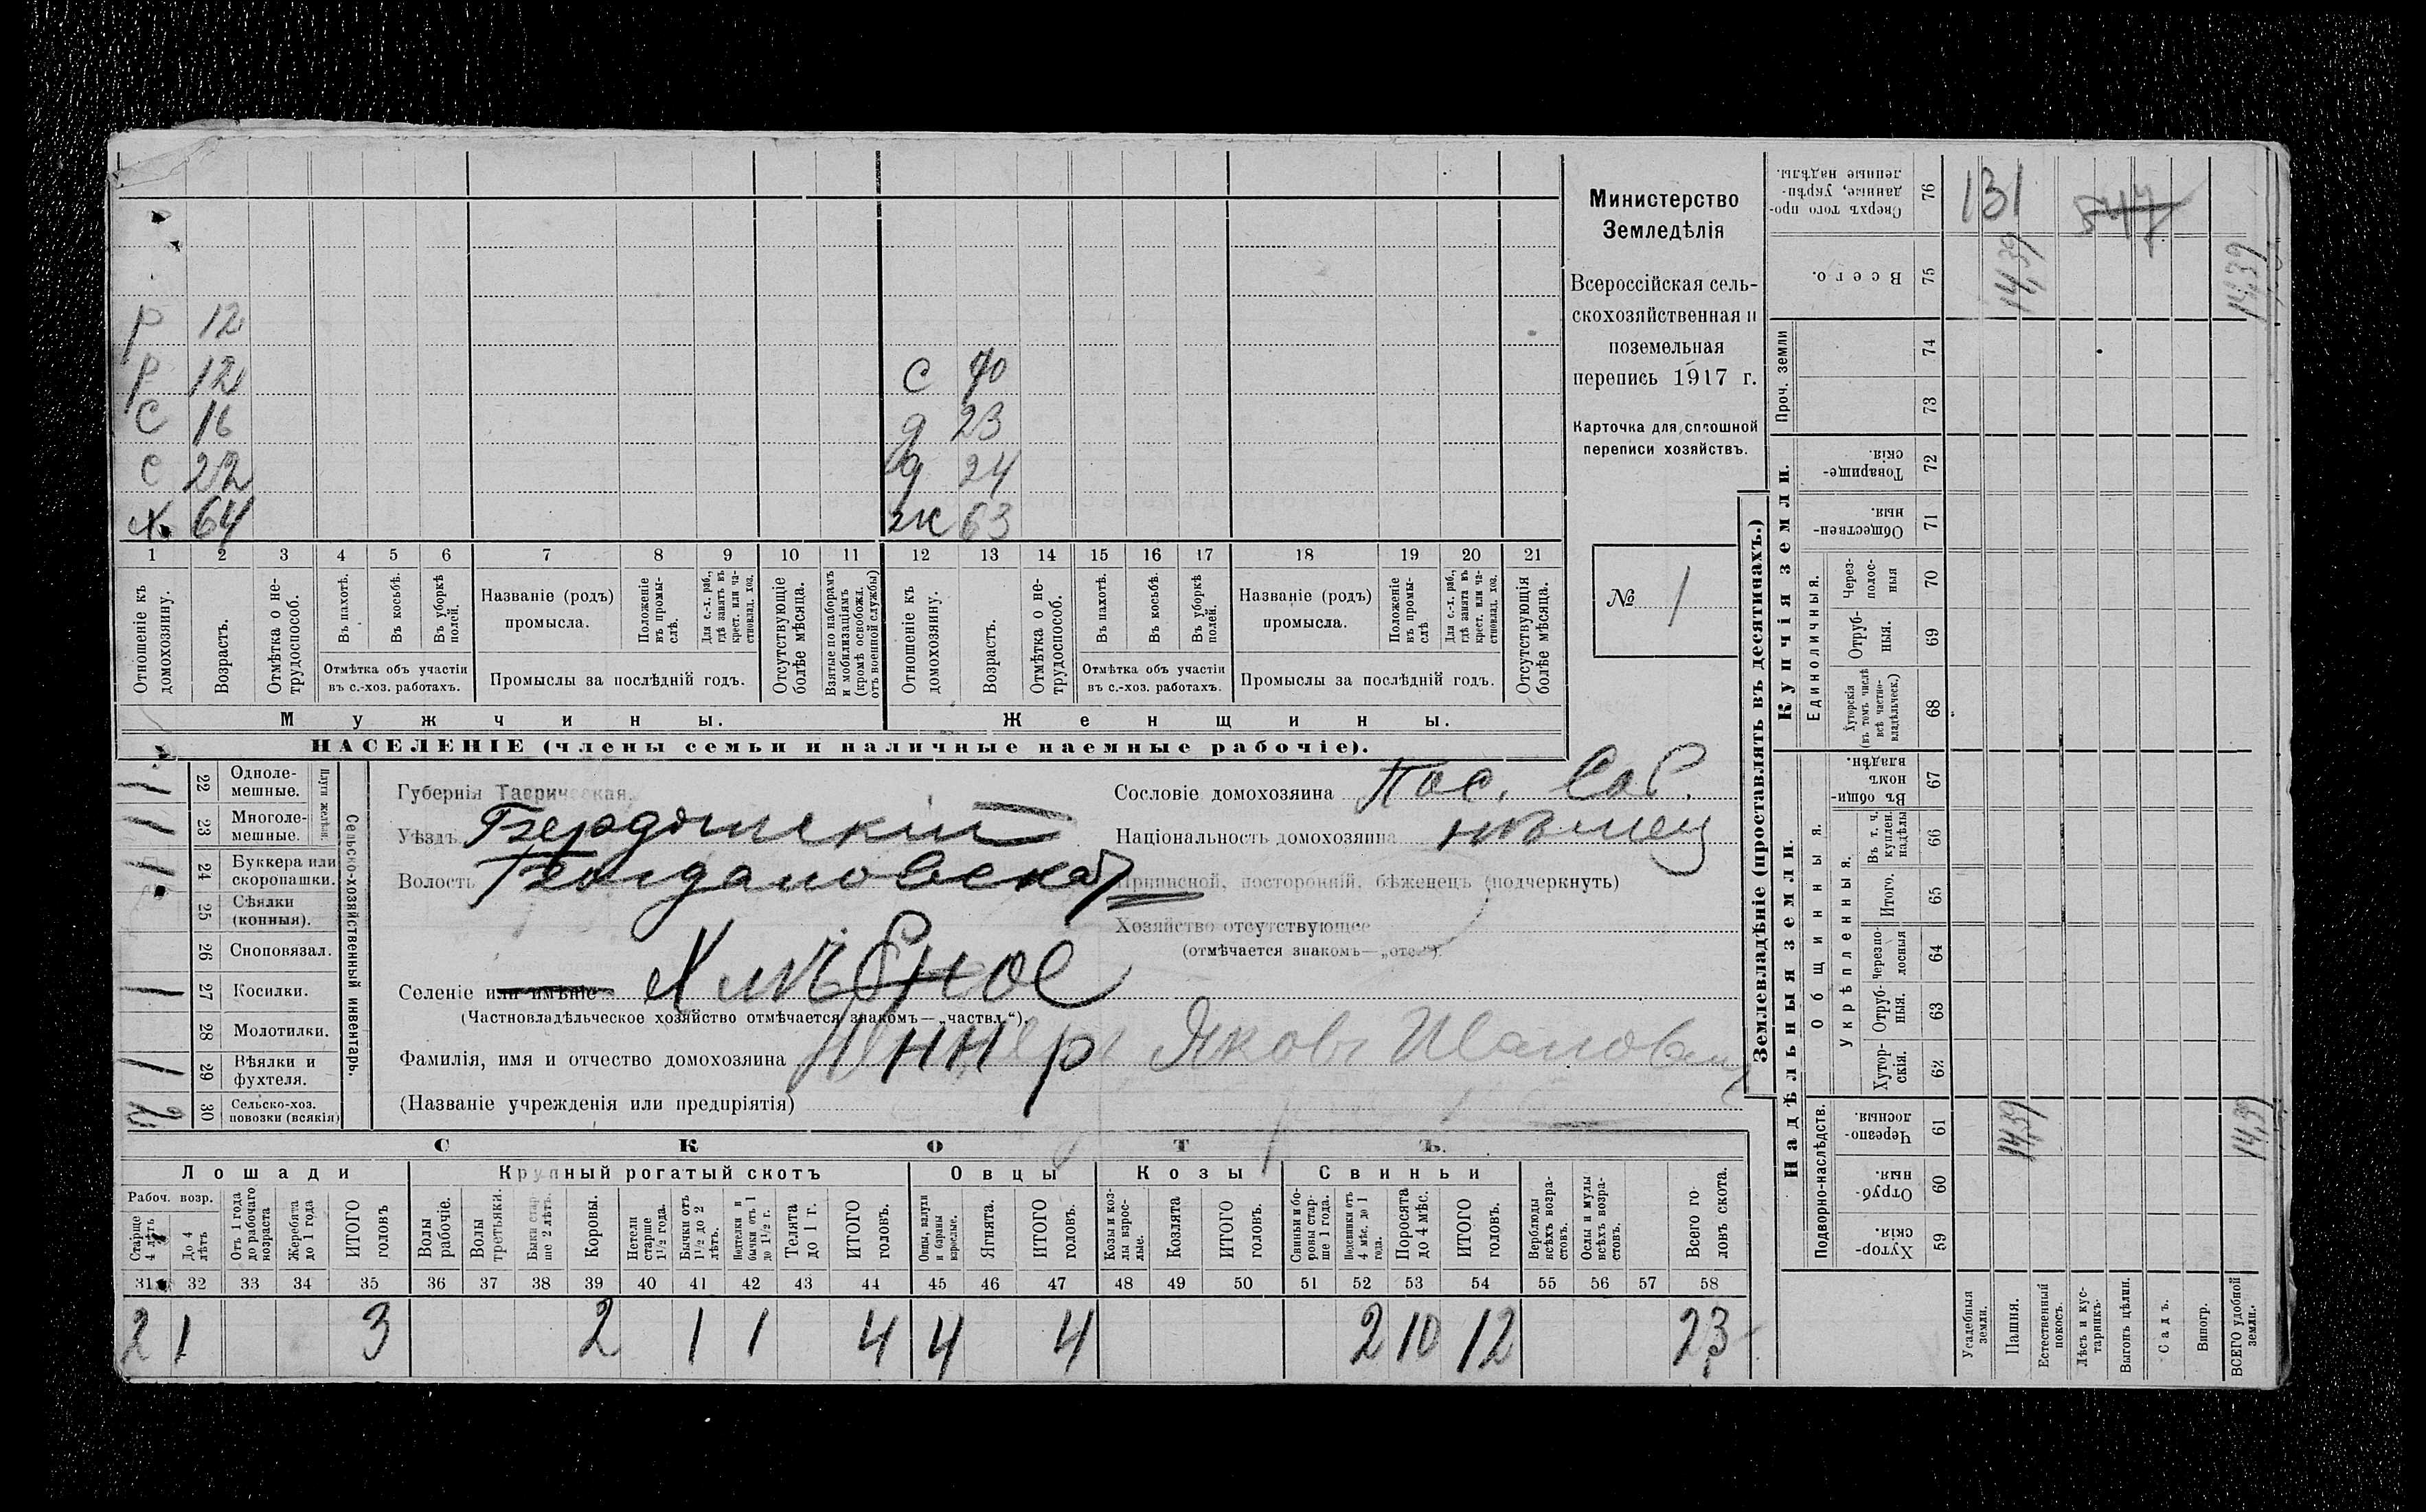 р 12
р 12 с 40
с 16 д 23
с 22 д 24
х. 64 ж 63
1 2 3 4 5 6 7 8 9 10 11 12 13 14 15 16 17 18 19 20 21
Отношеніе къ домохозяину.
Возрастъ.
Отмѣтка о не-трудоспособ.
Въ пахотѣ.
Въ косьбѣ.
Въ уборкѣ полей.
Отмѣтка объ участіи
въ с.-хоз. работахъ.
Названіе (родъ)
промысла.
Положеніе въ промы-слѣ.
Для с.-х. раб., гдѣ занятъ въ крест. или ча-стновлад. хоз.
Промыслы за послѣдній годъ.
Отсутствующіе болѣе мѣсяца.
Взятые по наборамъ и мобилизаціямъ (кромѣ освобожд. отъ военной службы)
Отношеніе къ домохозяину.
Возрастъ.
Отмѣтка о не-трудоспособ.
Въ пахотѣ.
Въ косьбѣ.
Въ уборкѣ полей.
Отмѣтка объ участіи
въ с.-хоз. работахъ.
Названіе (родъ)
промысла.
Положеніе въ промы-слѣ
Для с.-х. раб., гдѣ занята въ крест. или ча-стновлад. хоз.
Промыслы за послѣдній годъ.
Отсутствующія болѣе мѣсяца.
Мужчины. Женщины.
НАСЕЛЕНІЕ (члены семьи и наличные наемные рабочіе).
Министерство
Земледѣлія
Всероссійская сель-
скохозяйственная и
поземельная
перепись 1917 г.
Карточка для сплошной
переписи хозяйствъ.
№ 1
1 22 Одноле-мешные.
1 23 Многоле-мешные.
Плуги желѣзн.
1 24 Буккера или скоропашки.
25 Сѣялки (конныя).
26 Сноповязал.
1 27 Косилки.
28 Молотилки.
1 29 Вѣялки и фухтеля.
2 30 Сельско-хоз. повозки (всякія)
Сельско-хозяйственный инвентарь.
Губернія Таврическая.
Уѣздъ Бердянскій
Волость Богдановская
Селеніе или имѣніе Хлѣбное
(Частновладѣльческое хозяйство отмѣчается знакомъ—„частвл.“).
Фамилія, имя и отчество домохозяина Яковъ Ивановъ
(Названіе учрежденія или предпріятія)
Сословіе домохозяина Пос. Соб.
Національность домохозяина нѣмец
Приписной, посторонній, бѣженецъ (подчеркнуть)
Хозяйство отсутствующее
(отмѣчается знакомъ—„отс.“).
СКОТЪ.
Лошади Крупный рогатый скотъ Овцы Козы Свиньи
Рабоч. возр.
Старше 4 лѣтъ
До 4 лѣтъ
Отъ 1 года до рабочаго возраста
Жеребята до 1 года
ИТОГО головъ
Волы рабочіе.
Волы третьяки.
Быки стар-ше 2 лѣтъ.
Коровы.
Нетели старше 1½ года.
Бычки отъ 1½ до 2 лѣтъ.
Подтелки и бычки отъ 1 до 1½ г.
Телята до 1 г.
ИТОГО головъ.
Овцы, валухи и бараны взрослые.
Ягнята.
ИТОГО головъ.
Козы и коз-лы взрос-лые.
Козлята
ИТОГО головъ.
Свиньи и бо-ровы стар-ше 1 года.
Подсвинки отъ 4 мѣс. до 1 года.
Поросята до 4 мѣс.
ИТОГО головъ.
Верблюды всѣхъ возра-стовъ.
Ослы и мулы всѣхъ возра-стовъ.
Всего го-ловъ скота.
31 32 33 34 35 36 37 38 39 40 41 42 43 44 45 46 47 48 49 50 51 52 53 54 55 56 57 58
2 1 3 2 1 1 4 4 4 2 10 12 23
Землевладѣніе (проставлять въ десятинахъ.)
Сверхъ того про-данные, укрѣп-ленные надѣлы. 76 131 547
Всего. 75 14,39 14,39
Проч. земли 74
73
Купчія земли.
Товарище-скія. 72
Обществен-ныя. 71
Единоличныя.
Через-полос-ныя 70
Отруб-ныя. 69
Хуторскія (въ томъ числѣ всѣ частно-владѣльческ.) 68
Надѣльныя земли.
Общинныя.
Въ общи-номъ владѣн. 67
Укрѣпленныя.
Въ т. ч. куплен. надѣлы 66
Итого. 65
Черезпо-лосныя 64
Отруб-ныя. 63
Хутор-скія. 62
Подворно-наслѣдств.
Черезпо-лосныя. 61 14,39 14,39
Отруб-ныя. 60
Хутор-скія. 59
Усадебныя земли.
Пашня.
Естественный покосъ.
Лѣсъ и кус-тарникъ.
Выгонъ цѣлин.
Садъ.
Виногр.
ВСЕГО удобной земли.